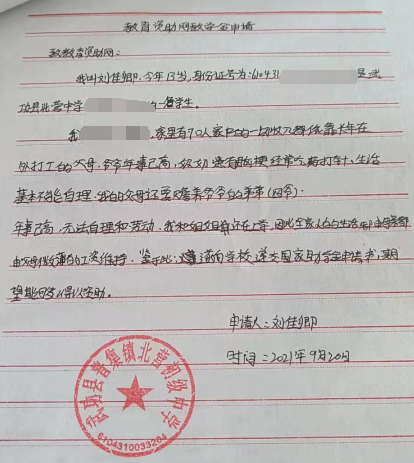 教育资助网教学金申请
致教育资助网：
我叫刘佳卿，今年13岁，身份证号为：610431 是武
功县北营中学 的一名学生。
我 家里有7口人家中的一切收入都依靠长年在
外打工的父母，爷爷年事已高，经常吃药打针，生活
基本不能自理，我的父母还要赡养爷爷的弟弟
年事已高，无法自理和劳动，我和姐姐都还在上学，因此全家人的生活
由父母微薄的工资维持，鉴于此，谨向学校递交国家助学金申请书，期
望能得以资助。
申请人：刘佳卿
时间：2021年9月20日
武功县普集镇北营初级中学
6104310033204